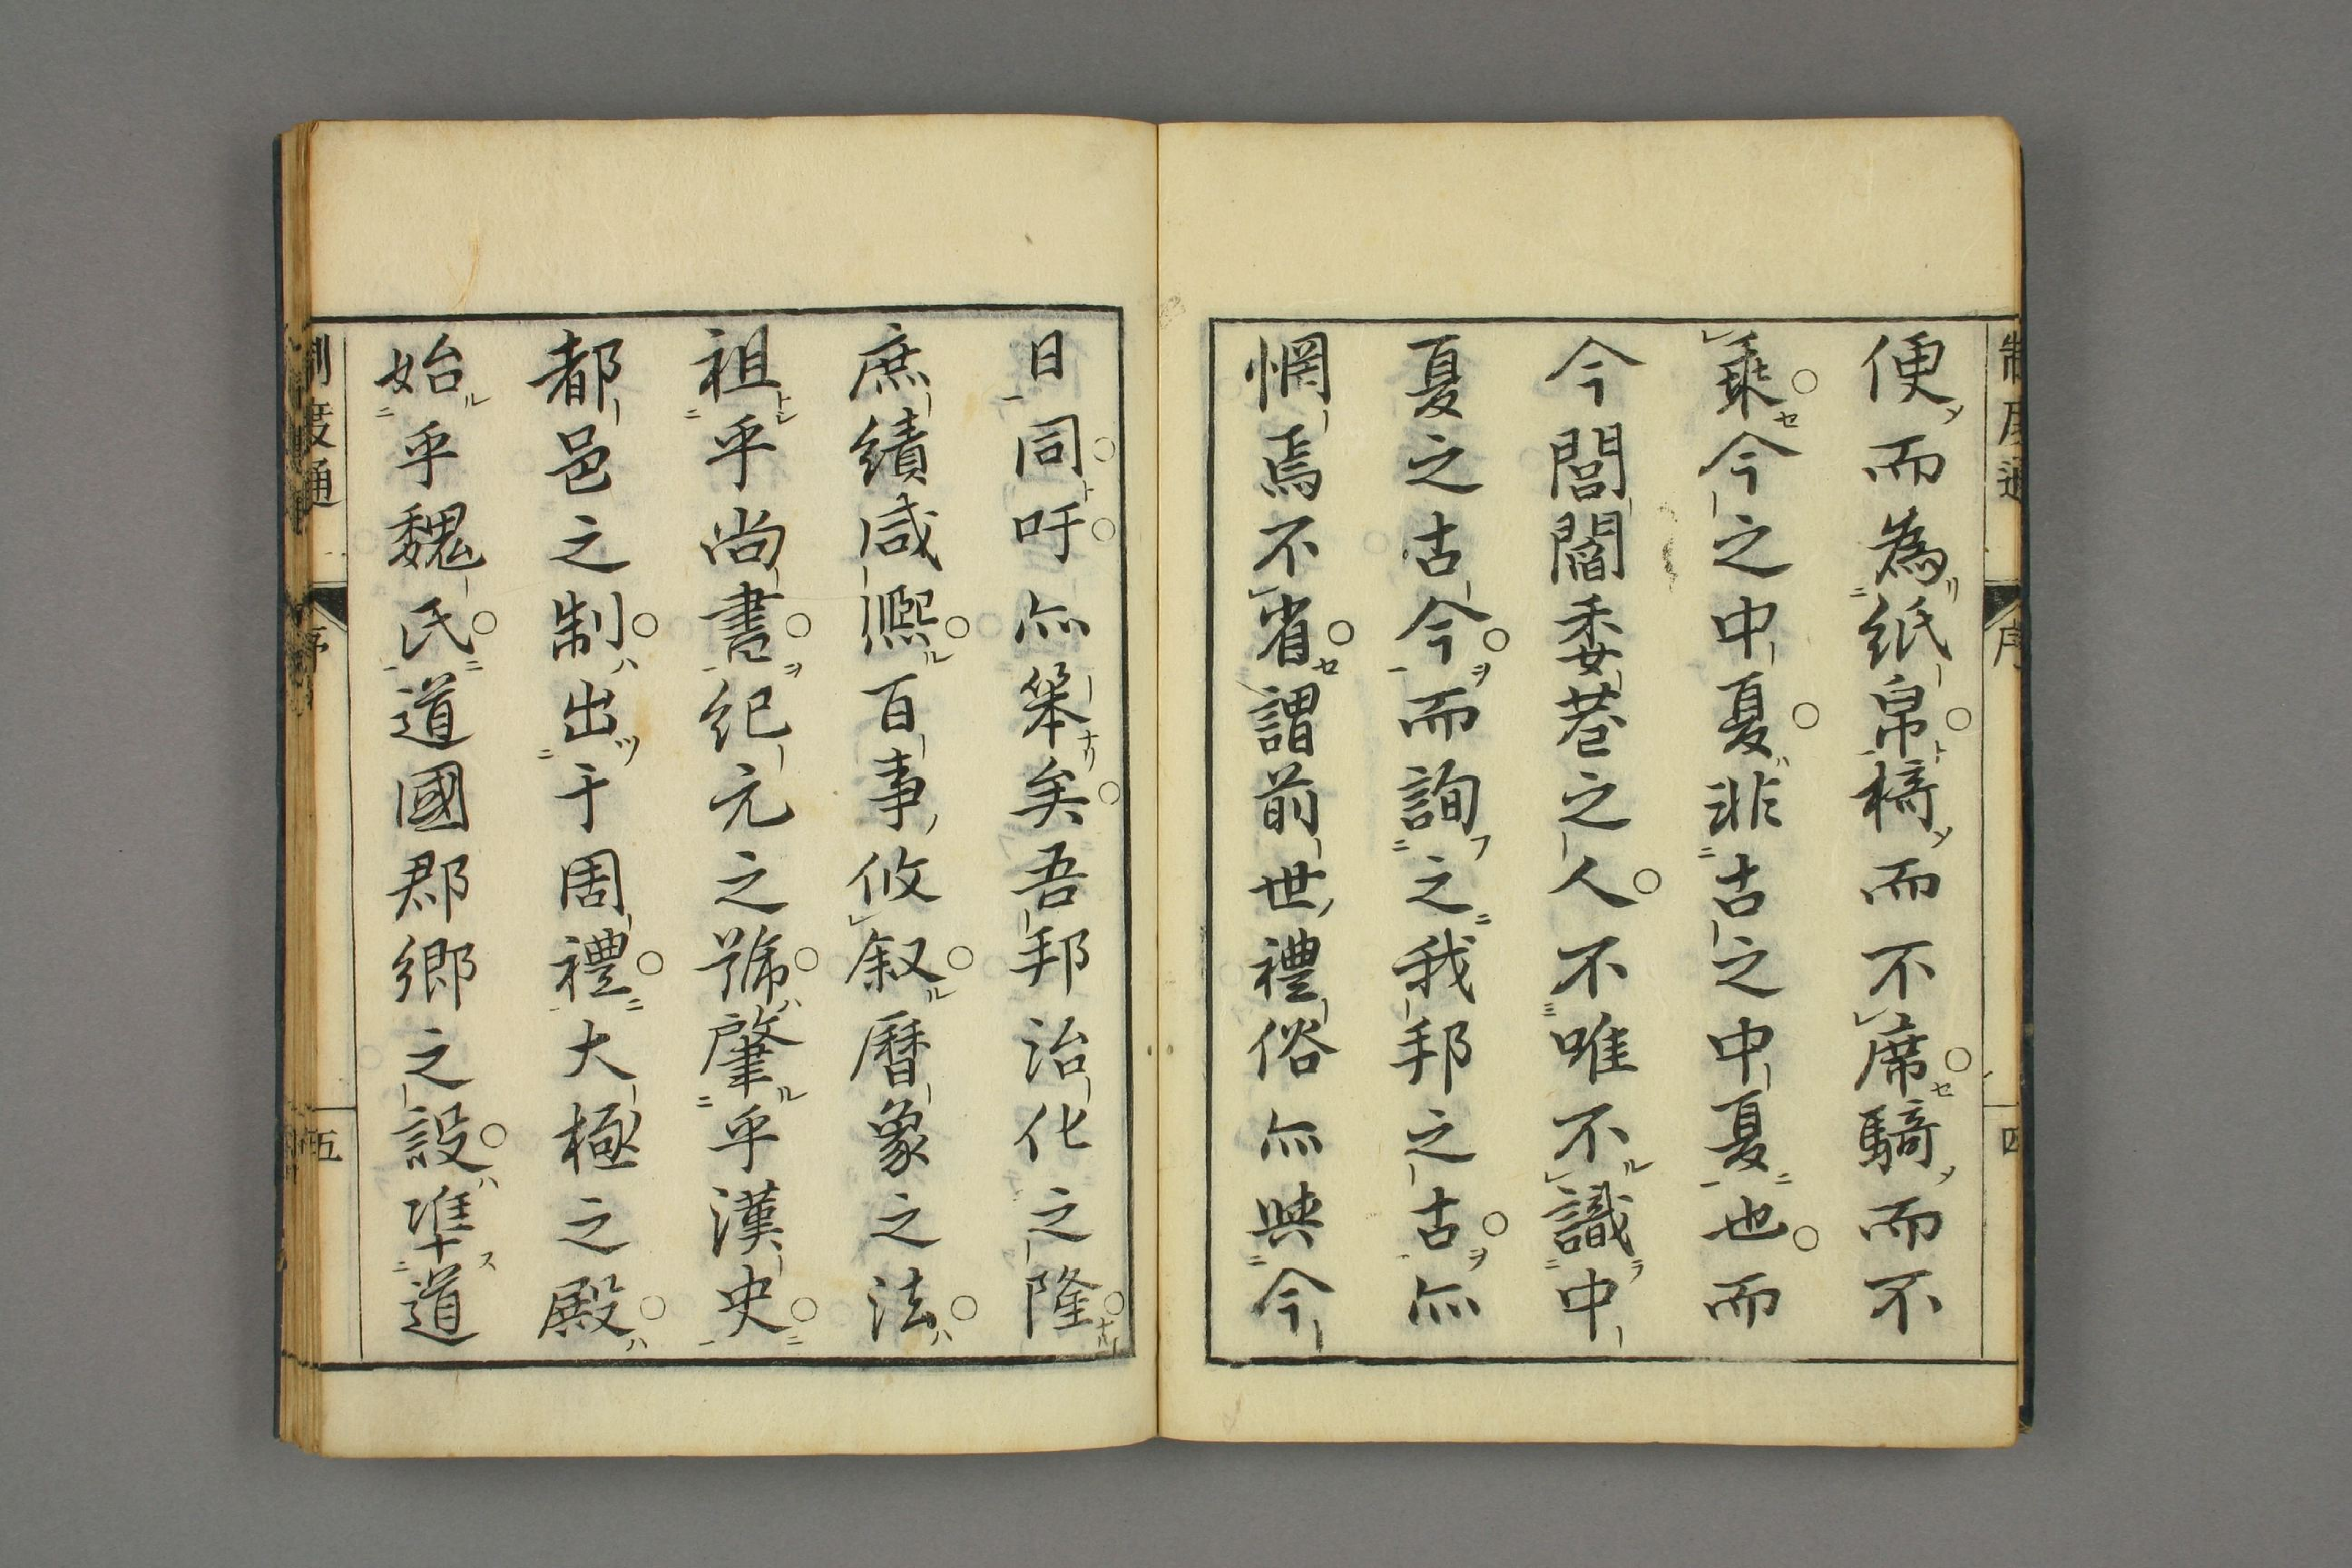 便而為紙帛椅而不席騎而不
乘今之中夏非古之中夏也而
今閭閻委巷之人不唯不識中
夏之古今而詢之我邦之古亦
惘焉不省謂前世禮俗亦與今
日同吁亦笨矣吾邦治化之隆
庶績咸熈百事攸叙曆象之法
祖乎尚書紀元之號肇乎漢史
都邑之制出于周禮大極之殿
始乎魏氏道國郡鄉之設準道
制度通 序 五